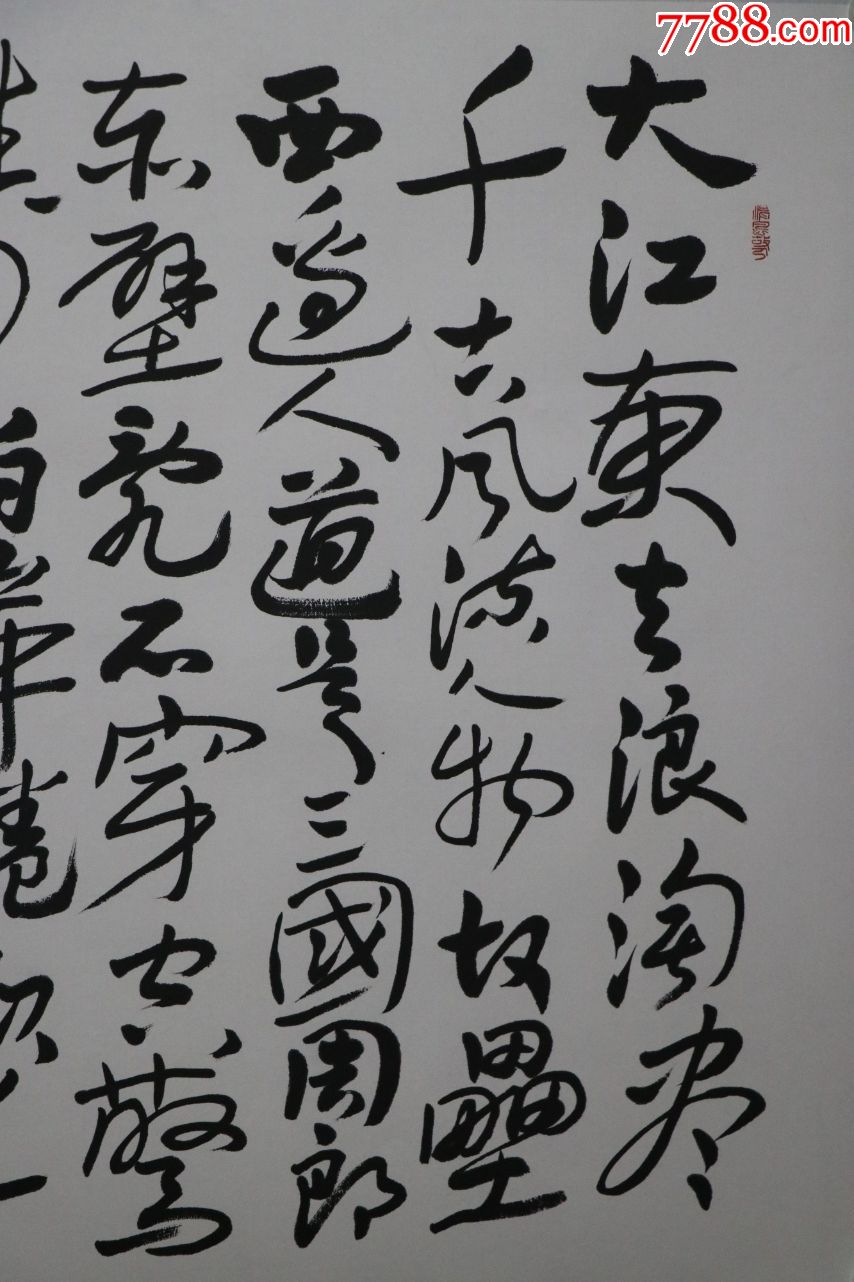 7788.com
大江東去浪淘尽
千古风流人物故壘
西邊人道是三國周郎
赤壁亂石穿空驚